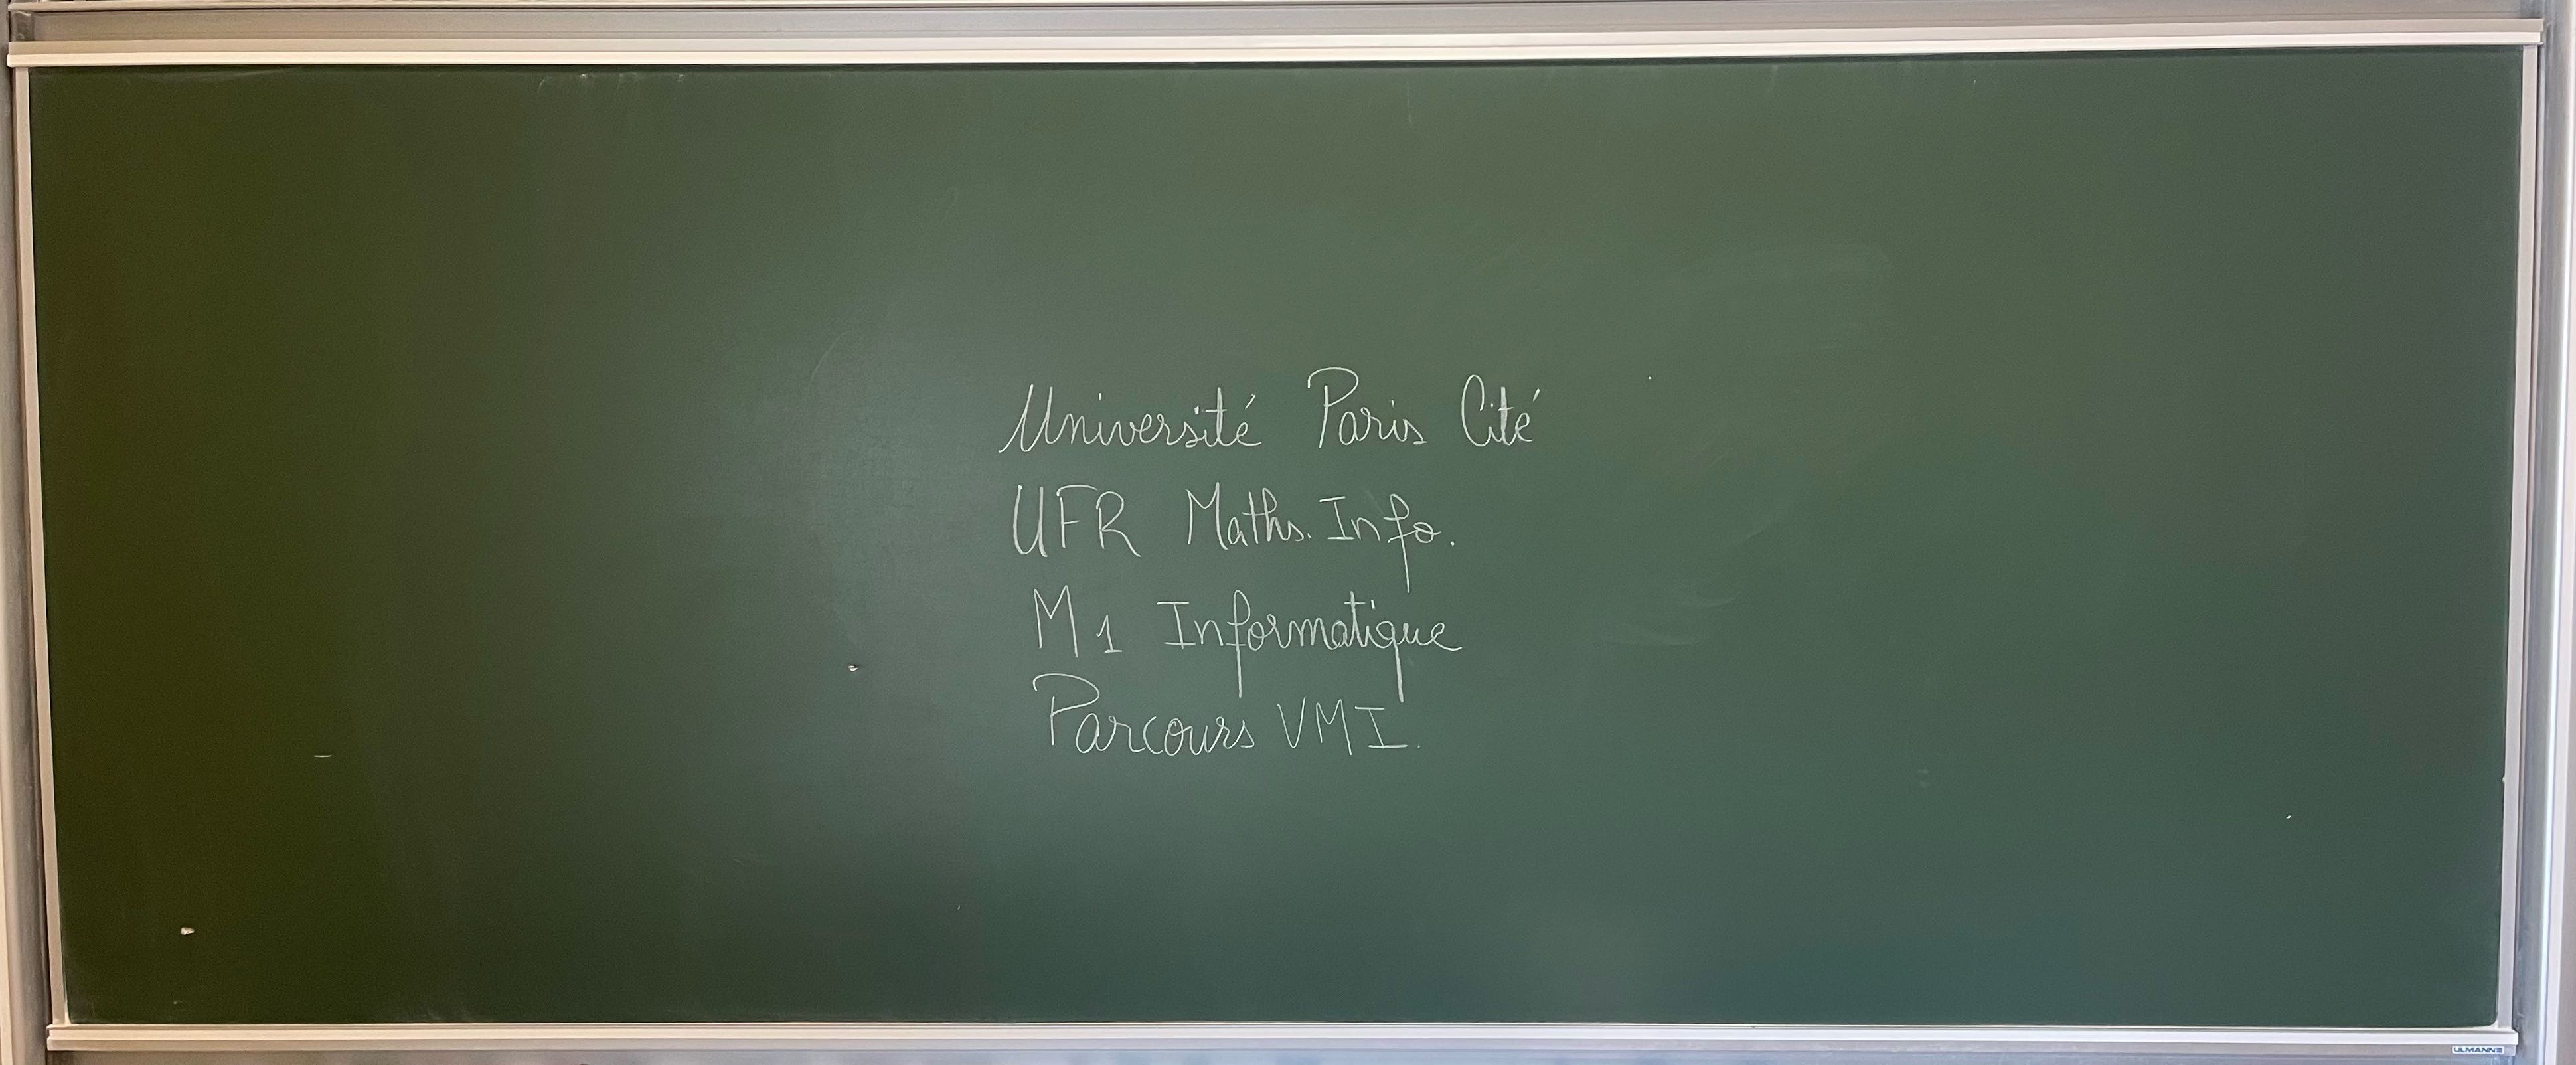 Université Paris Cité
UFR Maths. Info.
M1 Informatique
Parcours VMI.
ULMANN